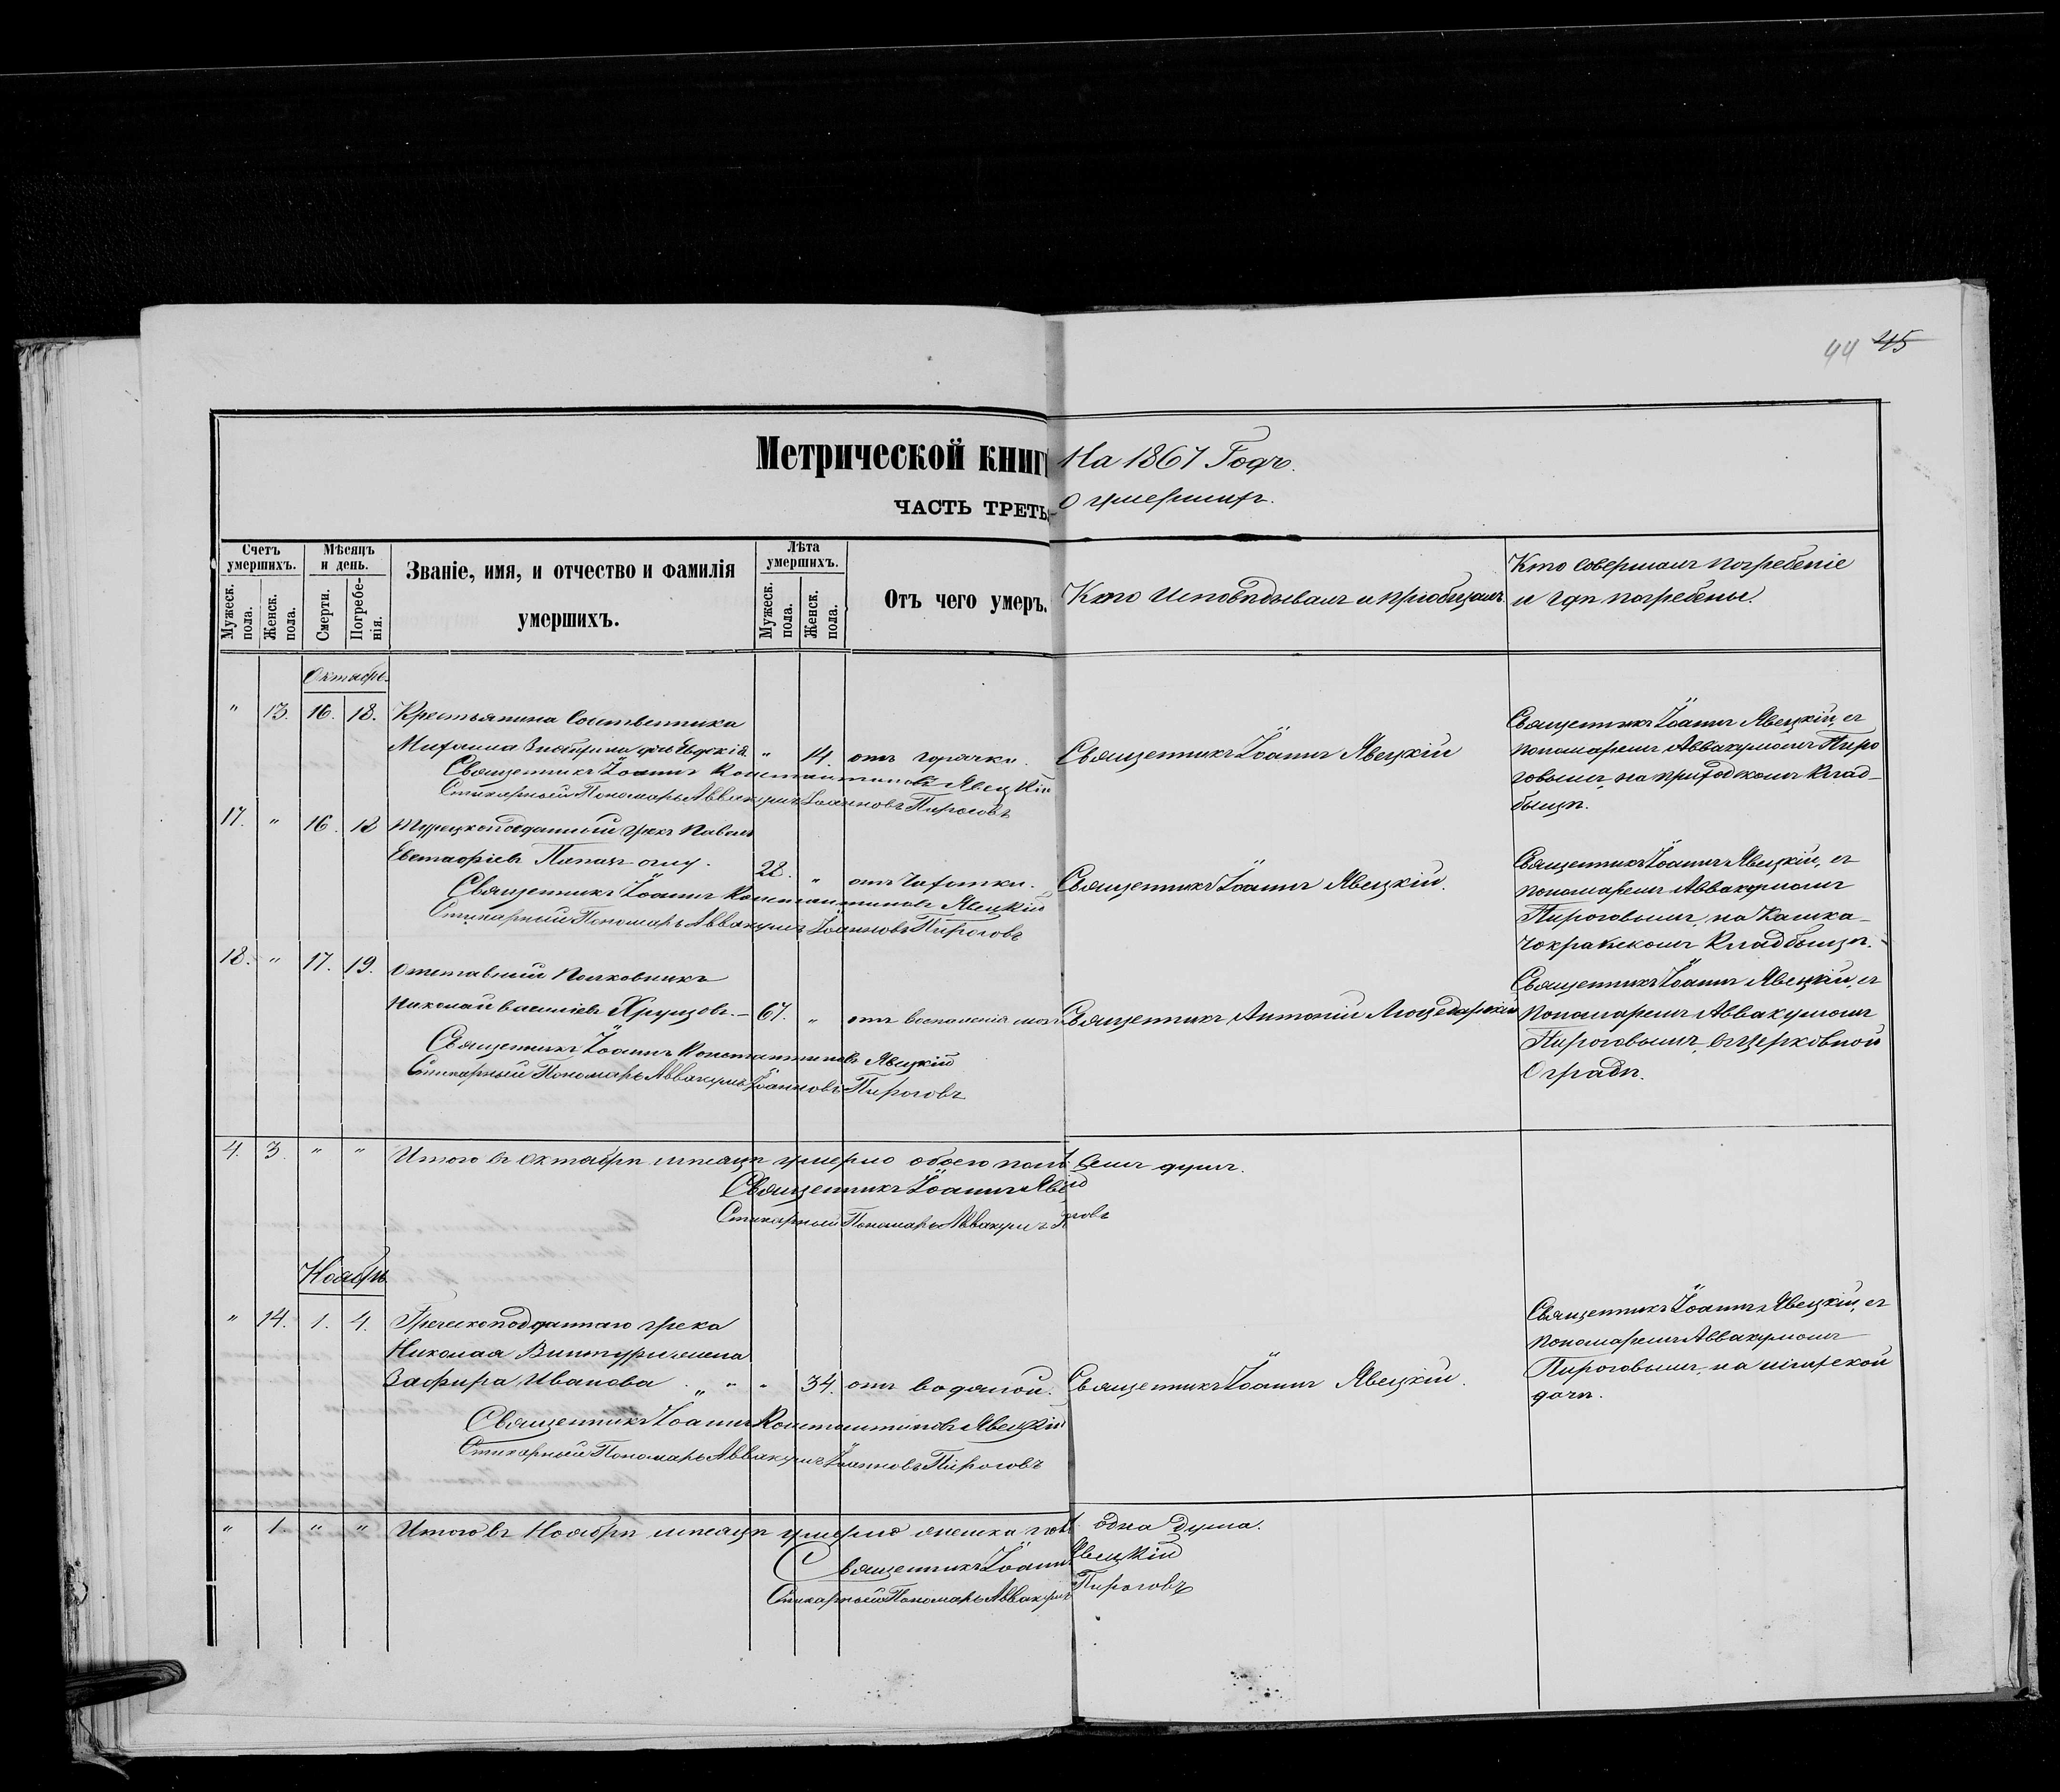 44 45
Метрической книги На 1867 Годъ.
ЧАСТЬ ТРЕТЬЯ О умершихъ.
Счетъ умершихъ.
Мужеск. пола.
Женск. пола.
Мѣсяцъ и день.
Смерти.
Погребенія.
Званіе, имя, и отчество и фамилія
умершихъ.
Лѣта умершихъ.
Мужеск. пола.
Женск. пола.
Отъ чего умеръ.
Кто Исповѣдывалъ и пріобщалъ.
Кто совершалъ погребеніе
и гдѣ погребены.
Октябрь
" 13. 16. 18. Крестьянина Собственника
Митрофана дочь Евдокія " 14. отъ горячки.
Священникъ Іоаннъ Явецкій
Священникъ Іоаннъ Явецкій, съ
пономаремъ Аввакумомъ Пиро
говымъ, на приходскомъ клад-
бищѣ.
Священникъ Іоаннъ Константиновъ Явецкій
Стихарный Пономарь Аввакумъ Іоанновъ Пироговъ
17. " 16. 18 Турецкоподданный грекъ Павелъ
Евстафіевъ 28. " отъ чахотки.
Священникъ Іоаннъ Явецкій.
Священникъ Іоаннъ Явецкій, съ
пономаремъ Аввакумомъ
Пироговымъ, на Кашка-
чокракскомъ кладбищѣ.
Священникъ Іоаннъ Константиновъ Явецкій
Стихарный Пономарь Аввакумъ Іоанновъ Пироговъ
18. " 17. 19. Отставной Полковникъ
Николай Васильевъ Хрущовъ. 67. " отъ воспаленія
Священникъ Антоній
Священникъ Іоаннъ Явецкій, съ
Пономаремъ Аввакумомъ
Пироговымъ, въ церковной
Оградѣ.
Священникъ Іоаннъ Константиновъ Явецкій
Стихарный Пономарь Аввакумъ Іоанновъ Пироговъ
4. 3. " " Итого въ Октябрѣ мѣсяцѣ умерло обоего пола семь душъ.
Священникъ Іоаннъ Явецкій
Стихарный Пономарь Аввакумъ Пироговъ
Ноябрь
" 14. 1. 4. Греческоподданнаго грека
Николая жена
Зафира Иванова " " " 34. отъ водяной.
Священникъ Іоаннъ Явецкій.
Священникъ Іоаннъ Явецкій, съ
пономаремъ Аввакумомъ
Пироговымъ, на
дачѣ.
Священникъ Іоаннъ Константиновъ Явецкій
Стихарный Пономарь Аввакумъ Іоанновъ Пироговъ
" 1 " " Итого въ Ноябрѣ мѣсяцѣ умерло женска пола одна душа.
Священникъ Іоаннъ Явецкій
Стихарный Пономарь Аввакумъ Пироговъ